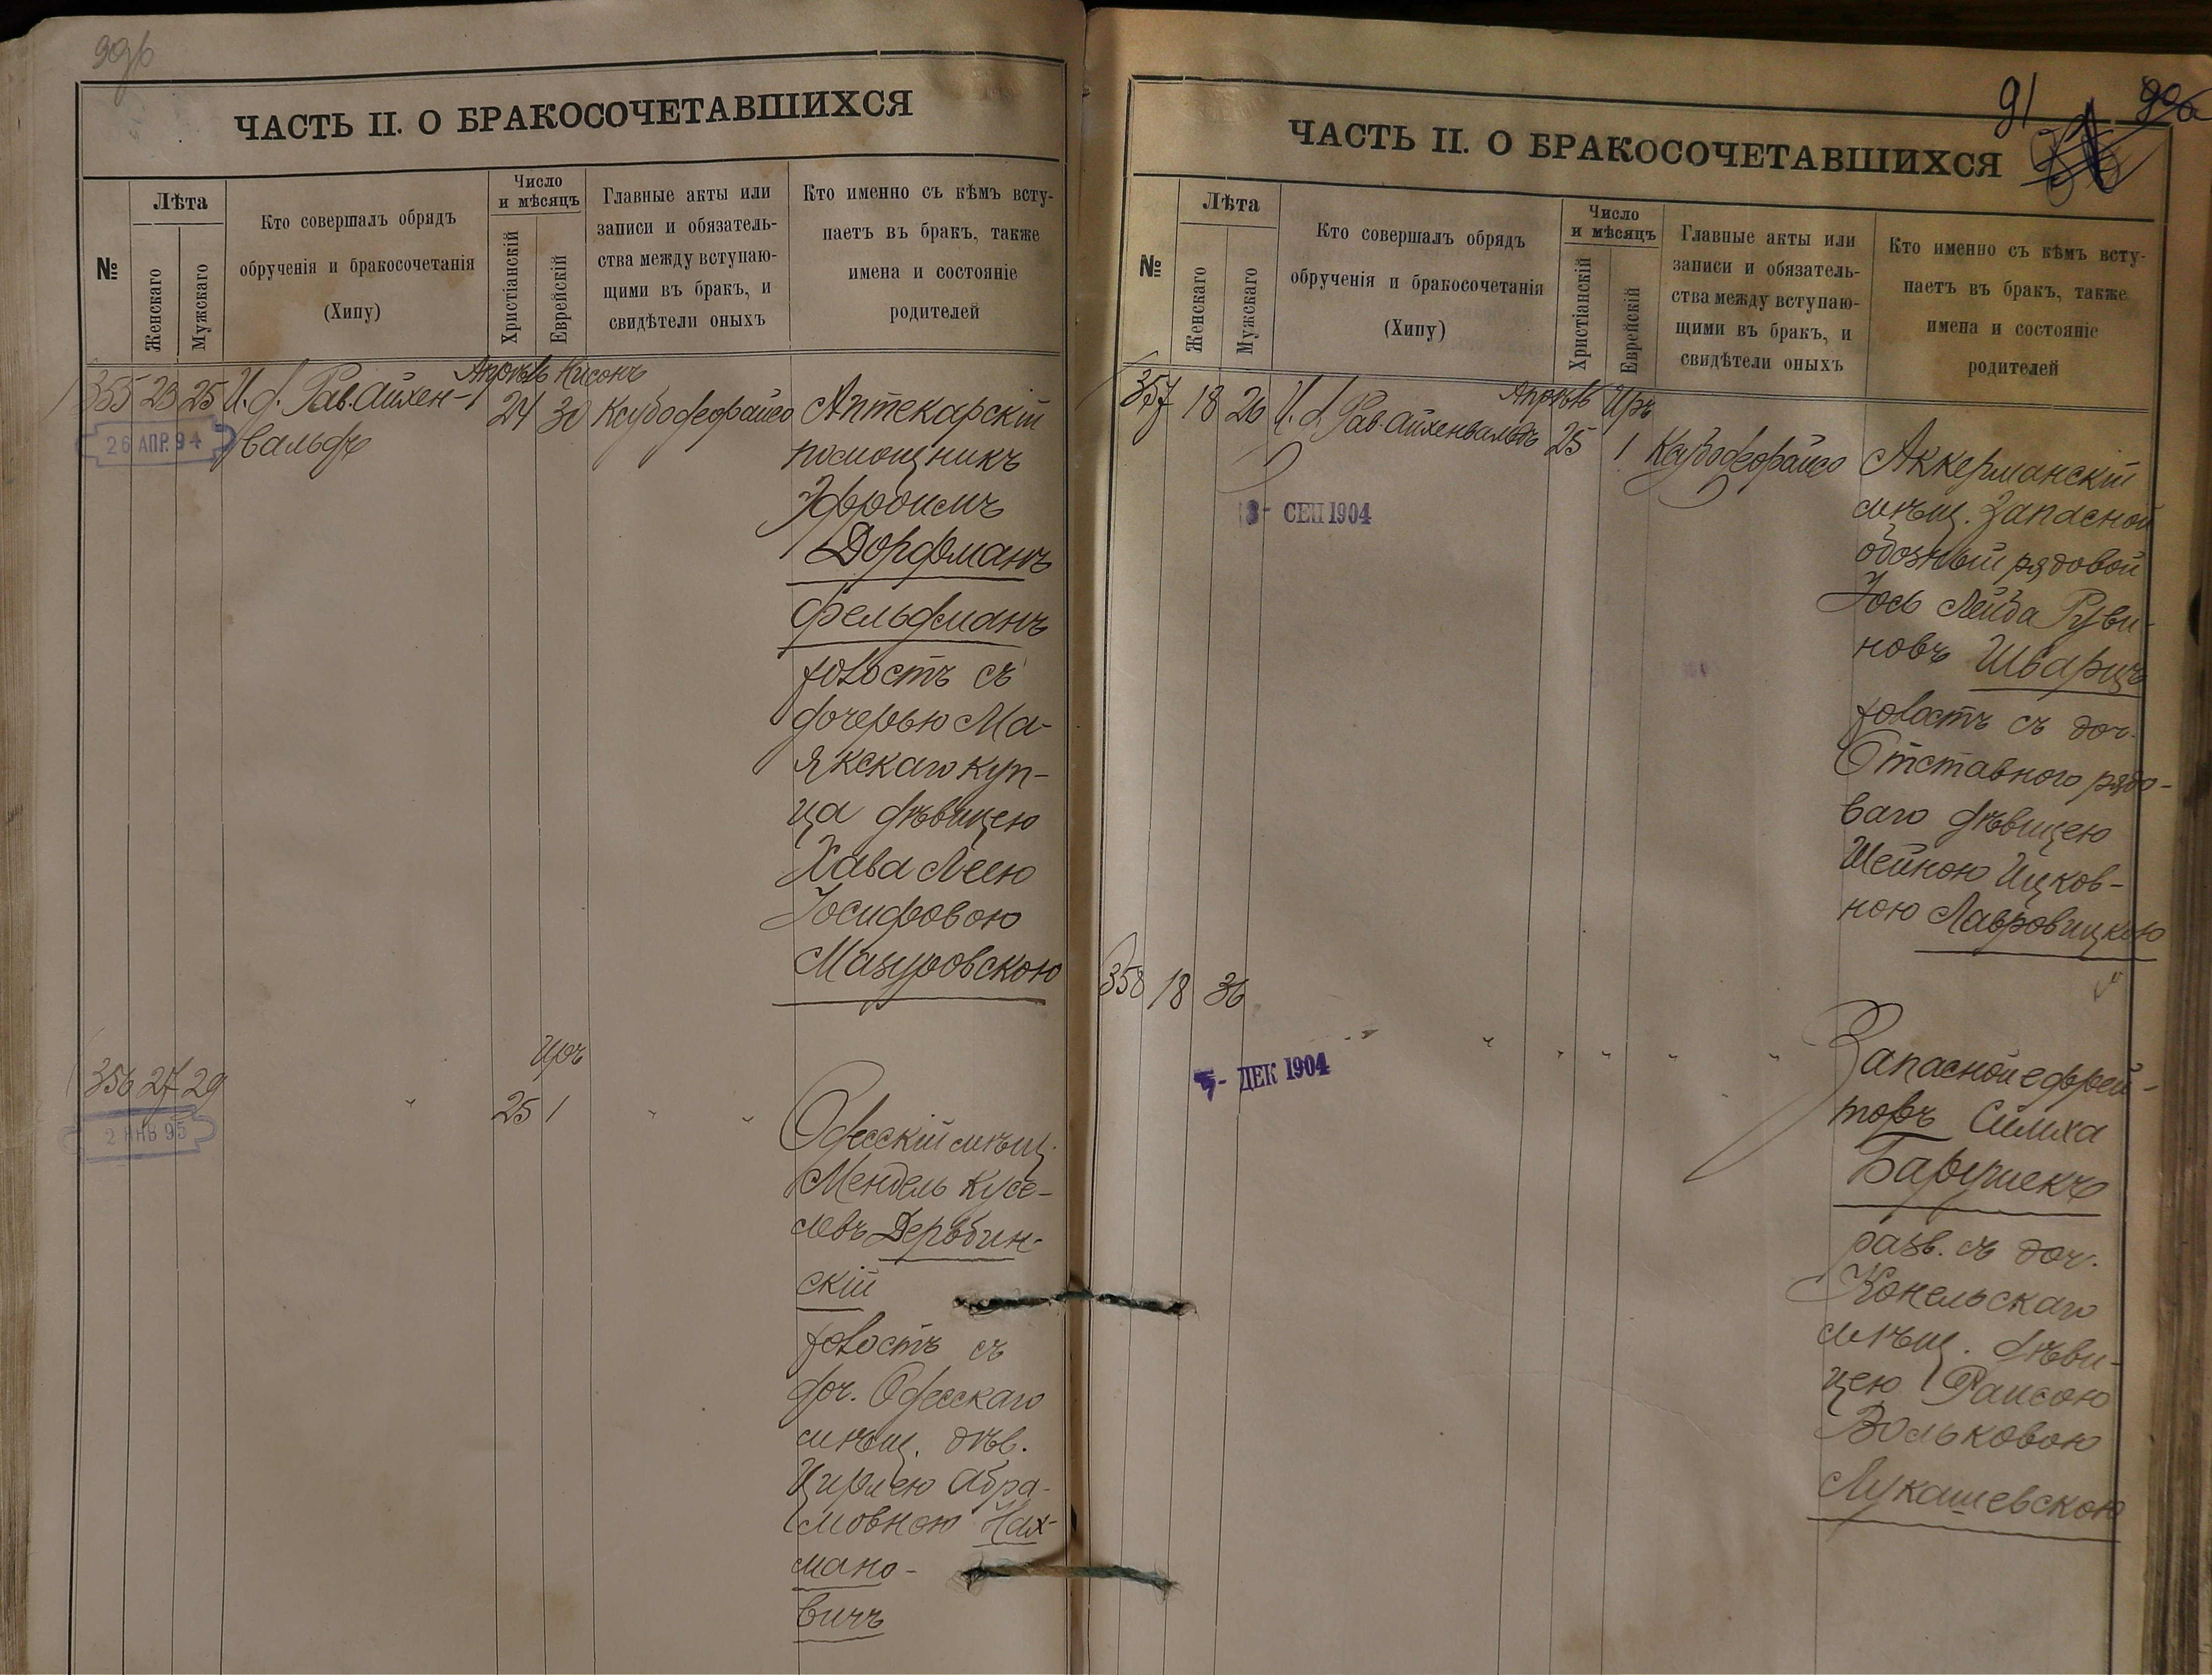 90б
ЧАСТЬ II. О БРАКОСОЧЕТАВШИХСЯ
№
Лѣта
Женскаго
Мужскаго
Кто совершалъ обрядъ
обрученія и бракосочетанія
(Хипу)
Число
и мѣсяцъ
Христіанскій
Еврейскій
Главные акты или
записи и обязатель-
ства между вступаю-
щими въ бракъ, и
свидѣтели оныхъ
Кто именно съ кѣмъ всту-
паетъ въ бракъ, также
имена и состояніе
родителей
Апрѣль Нисонъ
355 23 25 И. д. Рав. Айхен-
вальдъ
24 30 Ксубодеорайсо
26 АПР. 94
Аптекарскій
помощникъ
Эфроимъ
Дорфманъ
Фельдманъ
холостъ съ
дочерью Ма-
якскаго куп-
ца дѣвицею
Хава Леею
Іосифовою
Мазуровскою
Иръ
356 27 29 " 25 1 " "
2 ЯНВ 95
Одесскій мѣщ.
Мендель Кусе-
левъ Дерибин-
скій
холостъ съ
доч. Одесскаго
мѣщ. дѣв.
Цирлею Абра-
мовною Нах-
мано-
вичъ
91
ЧАСТЬ II. О БРАКОСОЧЕТАВШИХСЯ
№
Лѣта
Женскаго
Мужскаго
Кто совершалъ обрядъ
обрученія и бракосочетанія
(Хипу)
Число
и мѣсяцъ
Христіанскій
Еврейскій
Главные акты или
записи и обязатель-
ства между вступаю-
щими въ бракъ, и
свидѣтели оныхъ
Кто именно съ кѣмъ всту-
паетъ въ бракъ, также
имена и состояніе
родителей
Апрѣль Иръ
357 18 26 И. д. Рав. Айхенвальдъ 25 1 Ксубодеорайсо
СЕП 1904
Аккерманскій
мѣщ. Запасной
обозный рядовой
Іось Лейба Руви-
новъ Шварцъ
холостъ съ доч.
Отставного рядо-
ваго дѣвицею
Шейною Ицков-
ною Лавровицкою
358 18 36 " " " " " "
ДЕК 1904
Запасной ефрей-
торъ Симха
Барушекъ
разв. съ доч.
Конельскаго
мѣщ. дѣви-
цею Раисою
Вольковою
Лукашевскою